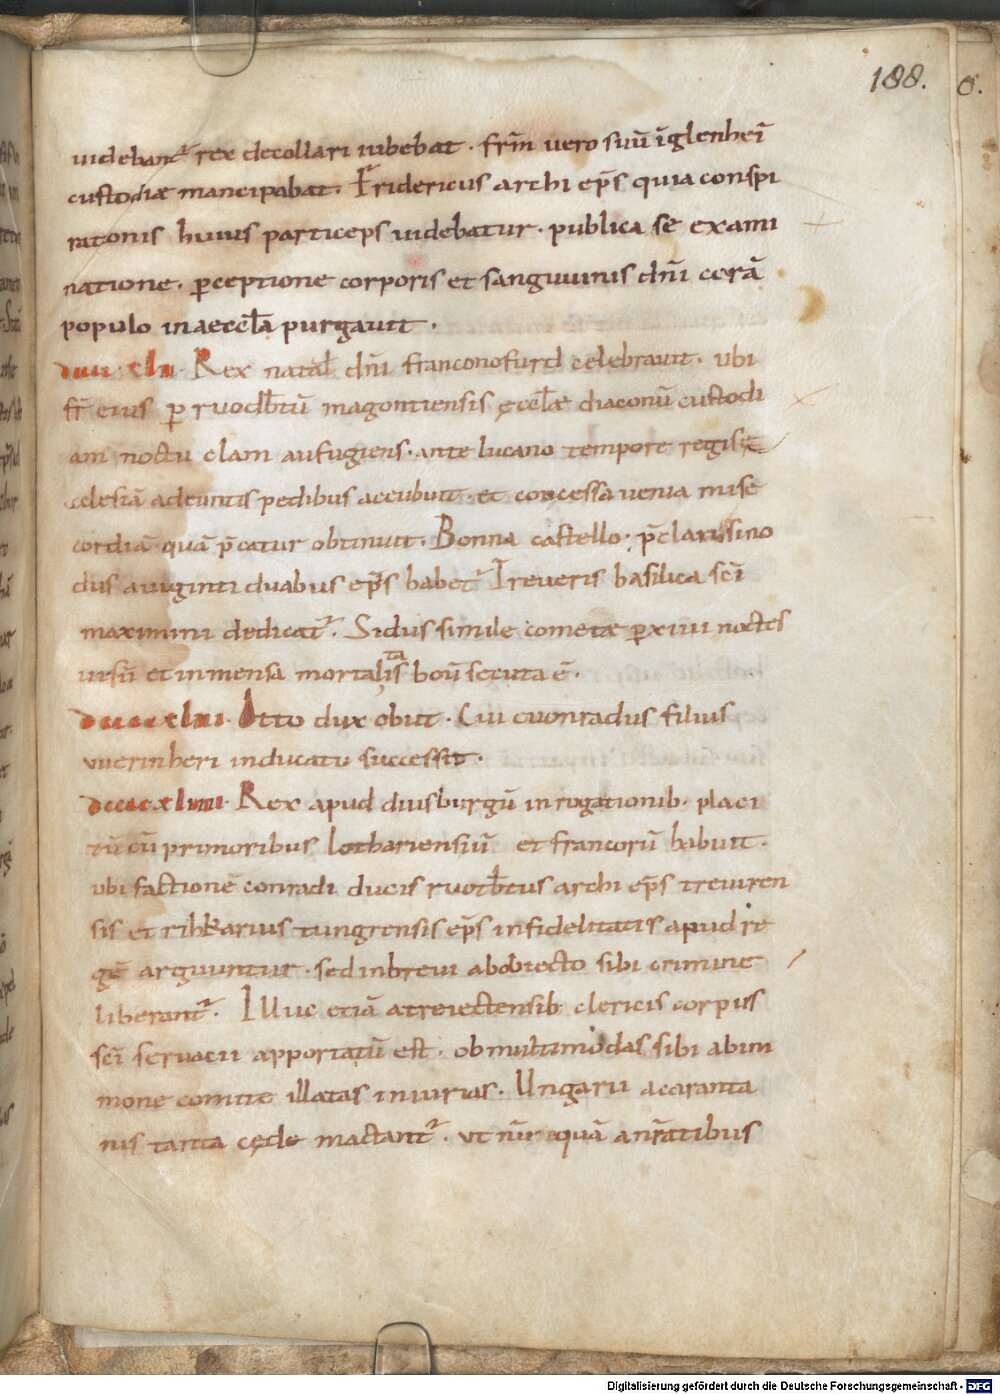 188. 6.
uidebant᷑ rex decollari iubebat · frm̄ uero suū īglenheī
custodiæ mancipabat. Fridericus archi ep̄s quia conspi
rationis huius particeps uidebatur · publica se exami
natione · ꝑceptione corporis et sanguuinis dn̄i corā
populo inaeccl̄a purgauit ·
dcccc·xlii· Rex natal̄ dn̄i franconofurd celebrauit · ubi
fr̄ eius ꝑ ruodb̄tū magontiensis ęccl̄æ diaconū custodi
am noctu clam aufugiens · ante lucano tempore regis ę
cclesiā adeuntis pedibus accubuit · et concessa uenia mise
cordiā quā p̄catur obtinuit. Bonna castello · p̄clara sino
dus auiginti duabus ep̄is habet᷑ Treueris basilica sc̄i
maximini dedicat᷑. Sidus simile cometæ ꝑ xiiii noctes
uisū et inmensa mortalis ta boū secuta ē ·
dccccxliii · Otto dux obiit · Cui cuonradus filius
uuerinheri inducatu successit ·
dccccxliiii · Rex apud diusburgū in rogationib · placi
tū cū primoribus lothariensiū et francorū habuit ·
ubi factione conradi ducis ruotb̄tus archi ep̄s treuiren
sis et rihkarius tungrensis ep̄s infidelitatis apud re
gē arguuntur · sed inbreui abobiecto sibi crimine
liberant᷑. Illuc etiā atreiectensib clericis corpus
sc̄i seruacii apportatū est · ob multimodas sibi abim
mone comite illatas iniurias · Ungarii acaranta
nis tanta cęde mactant᷑ · ut nūquā anr̄atibus
Digitalisierung gefördert durch die Deutsche Forschungsgemeinschaft - DFG